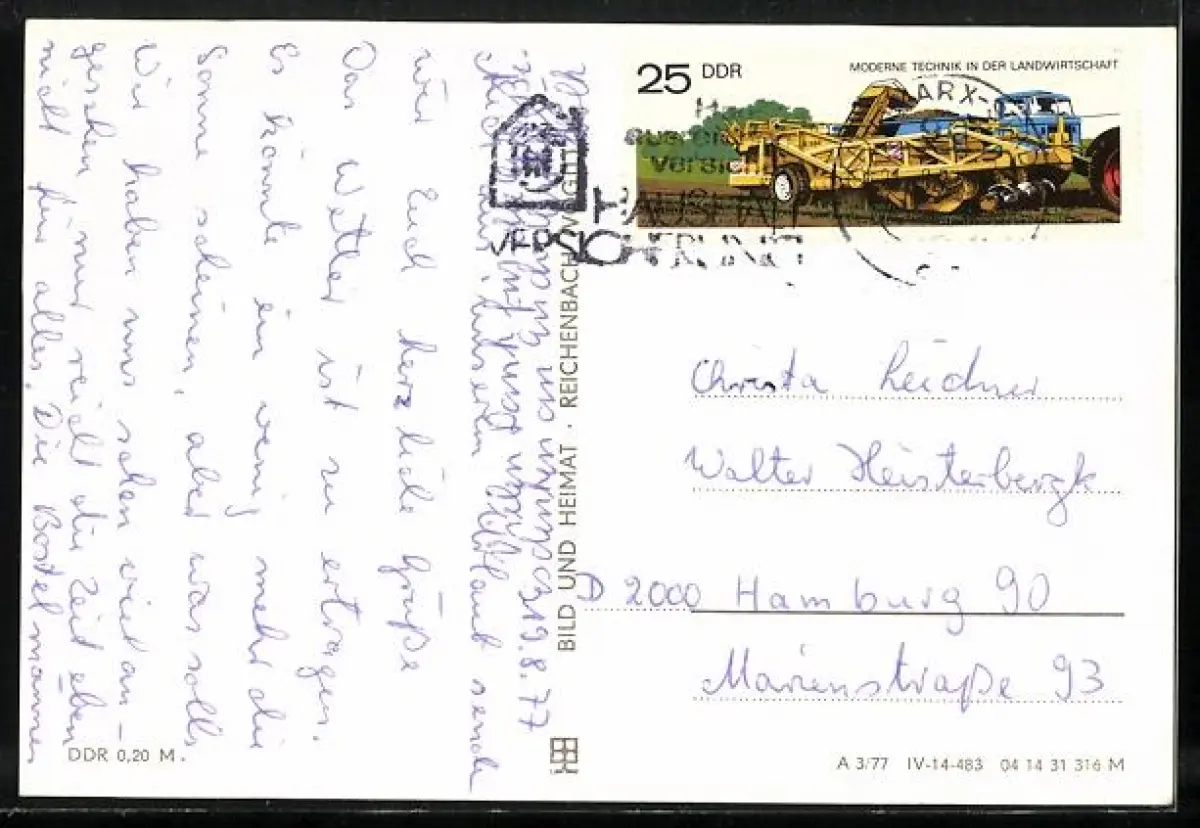 19.8.77
aus unserem Kurzurlaub sende
wir Euch herzliche Grüße
Das Wetter ist zu ertragen.
Es könnte ein wenig mehr die
Sonne scheinen, aber was solls
Wir haben uns schon viel an-
gesehen nur reicht die Zeit eben
nicht für alles. Die
DDR 0,20 M.
BILD UND HEIMAT · REICHENBACH
25 DDR
MODERNE TECHNIK IN DER LANDWIRTSCHAFT
ARX-
VERSICHERUNG
Christa
Walter Heisterbergk
D 2000 Hamburg 90
Marienstraße 93
A 3/77 IV-14-483 04 14 31 316 M